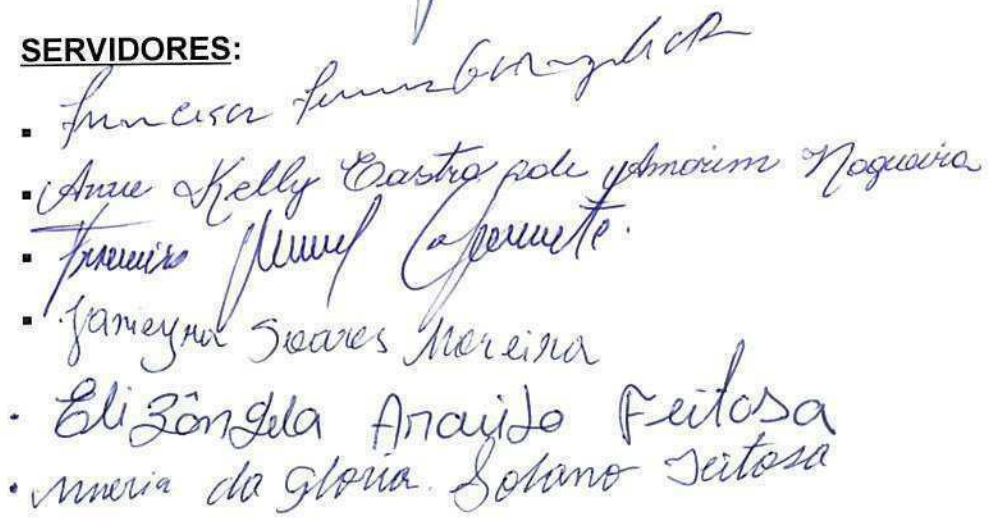 SERVIDORES:
Francisca
Anne Kelly Castro de Amorim Nogueira
Francisco Manuel Cafamute.
Janieyra Soares Moreira
Elizângela Araújo Feitosa
Maria da Gloria Solano Feitosa